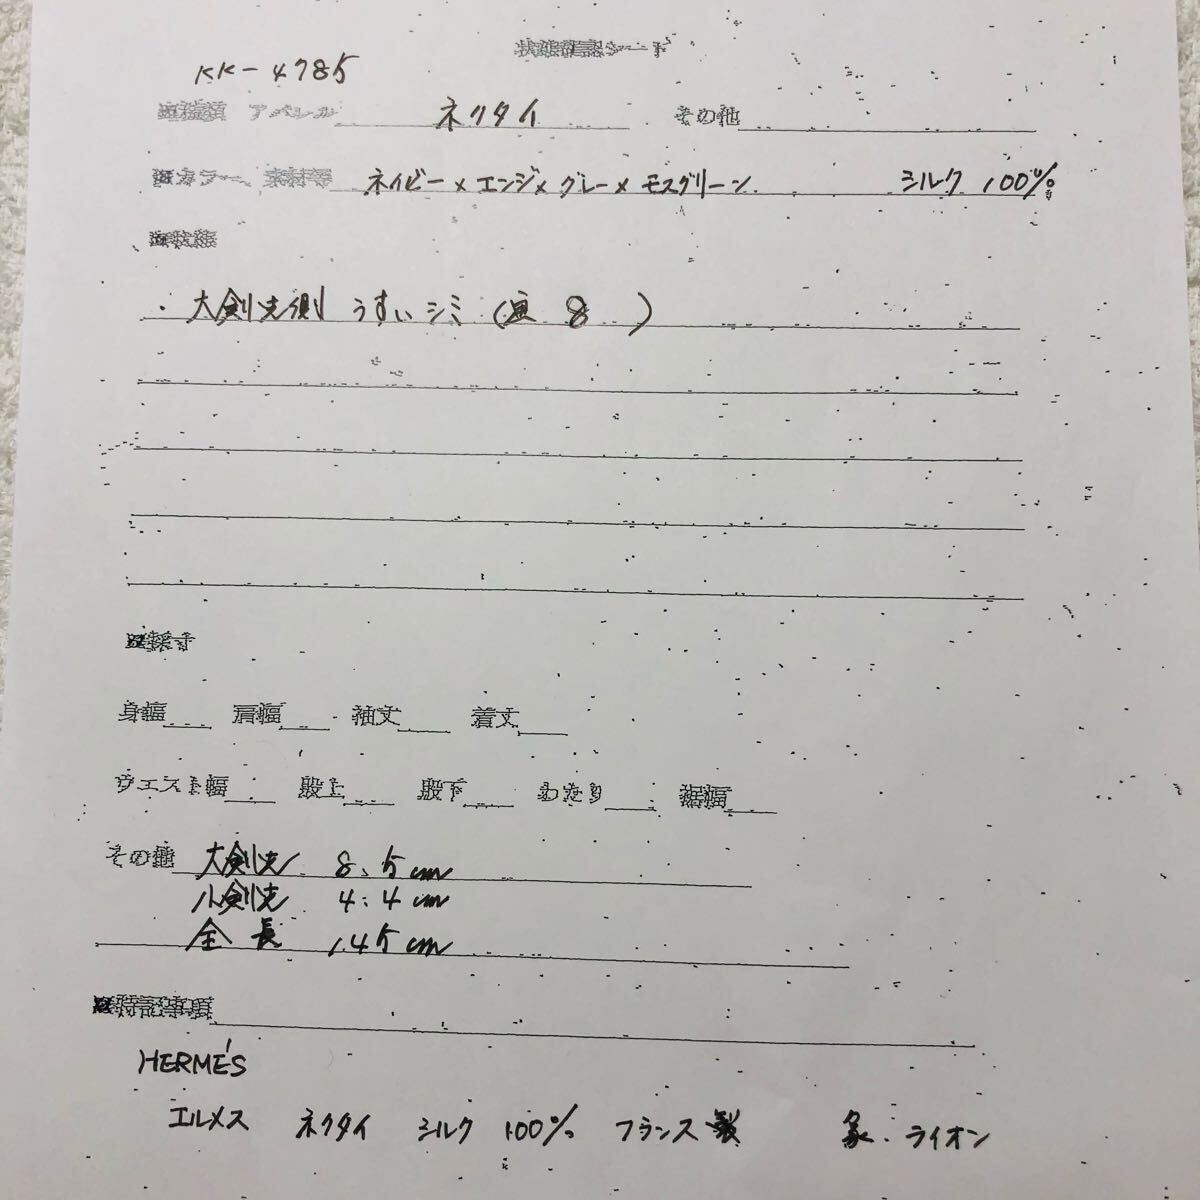 状態確認シート
KK-4785
種類 アパレル ネクタイ その他
カラー、素材等 ネイビー×エンジ×グレー×モスグリーン シルク 100%
状態
・大剣先側 うすいシミ( 8 )
採寸
身幅 肩幅 袖丈 着丈
ウエスト幅 股上 股下 わたり 裾幅
その他 大剣先 8.5cm
小剣先 4.4cm
全長 145cm
特記事項
HERMÉS
エルメス ネクタイ シルク 100% フランス製 象・ライオン